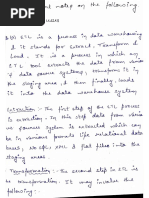 short notes on the following
ETL is a process in data warehousing
& it stands for extract, Transform &
Load. It is a process in which an
ETL tool extracts the data from various
data source systems, transform it in
the staging area & then finally, loads
it into the data warehouse system
Extraction:- The first step of the ETL process
is extraction. In this step data from various
source systems is extracted which can
be in various formats like relational data
bases, No SQL, XML & flat files into the
staging area.
Transformation:- The second step is ETL is
the transformation. It may involve the
following:-